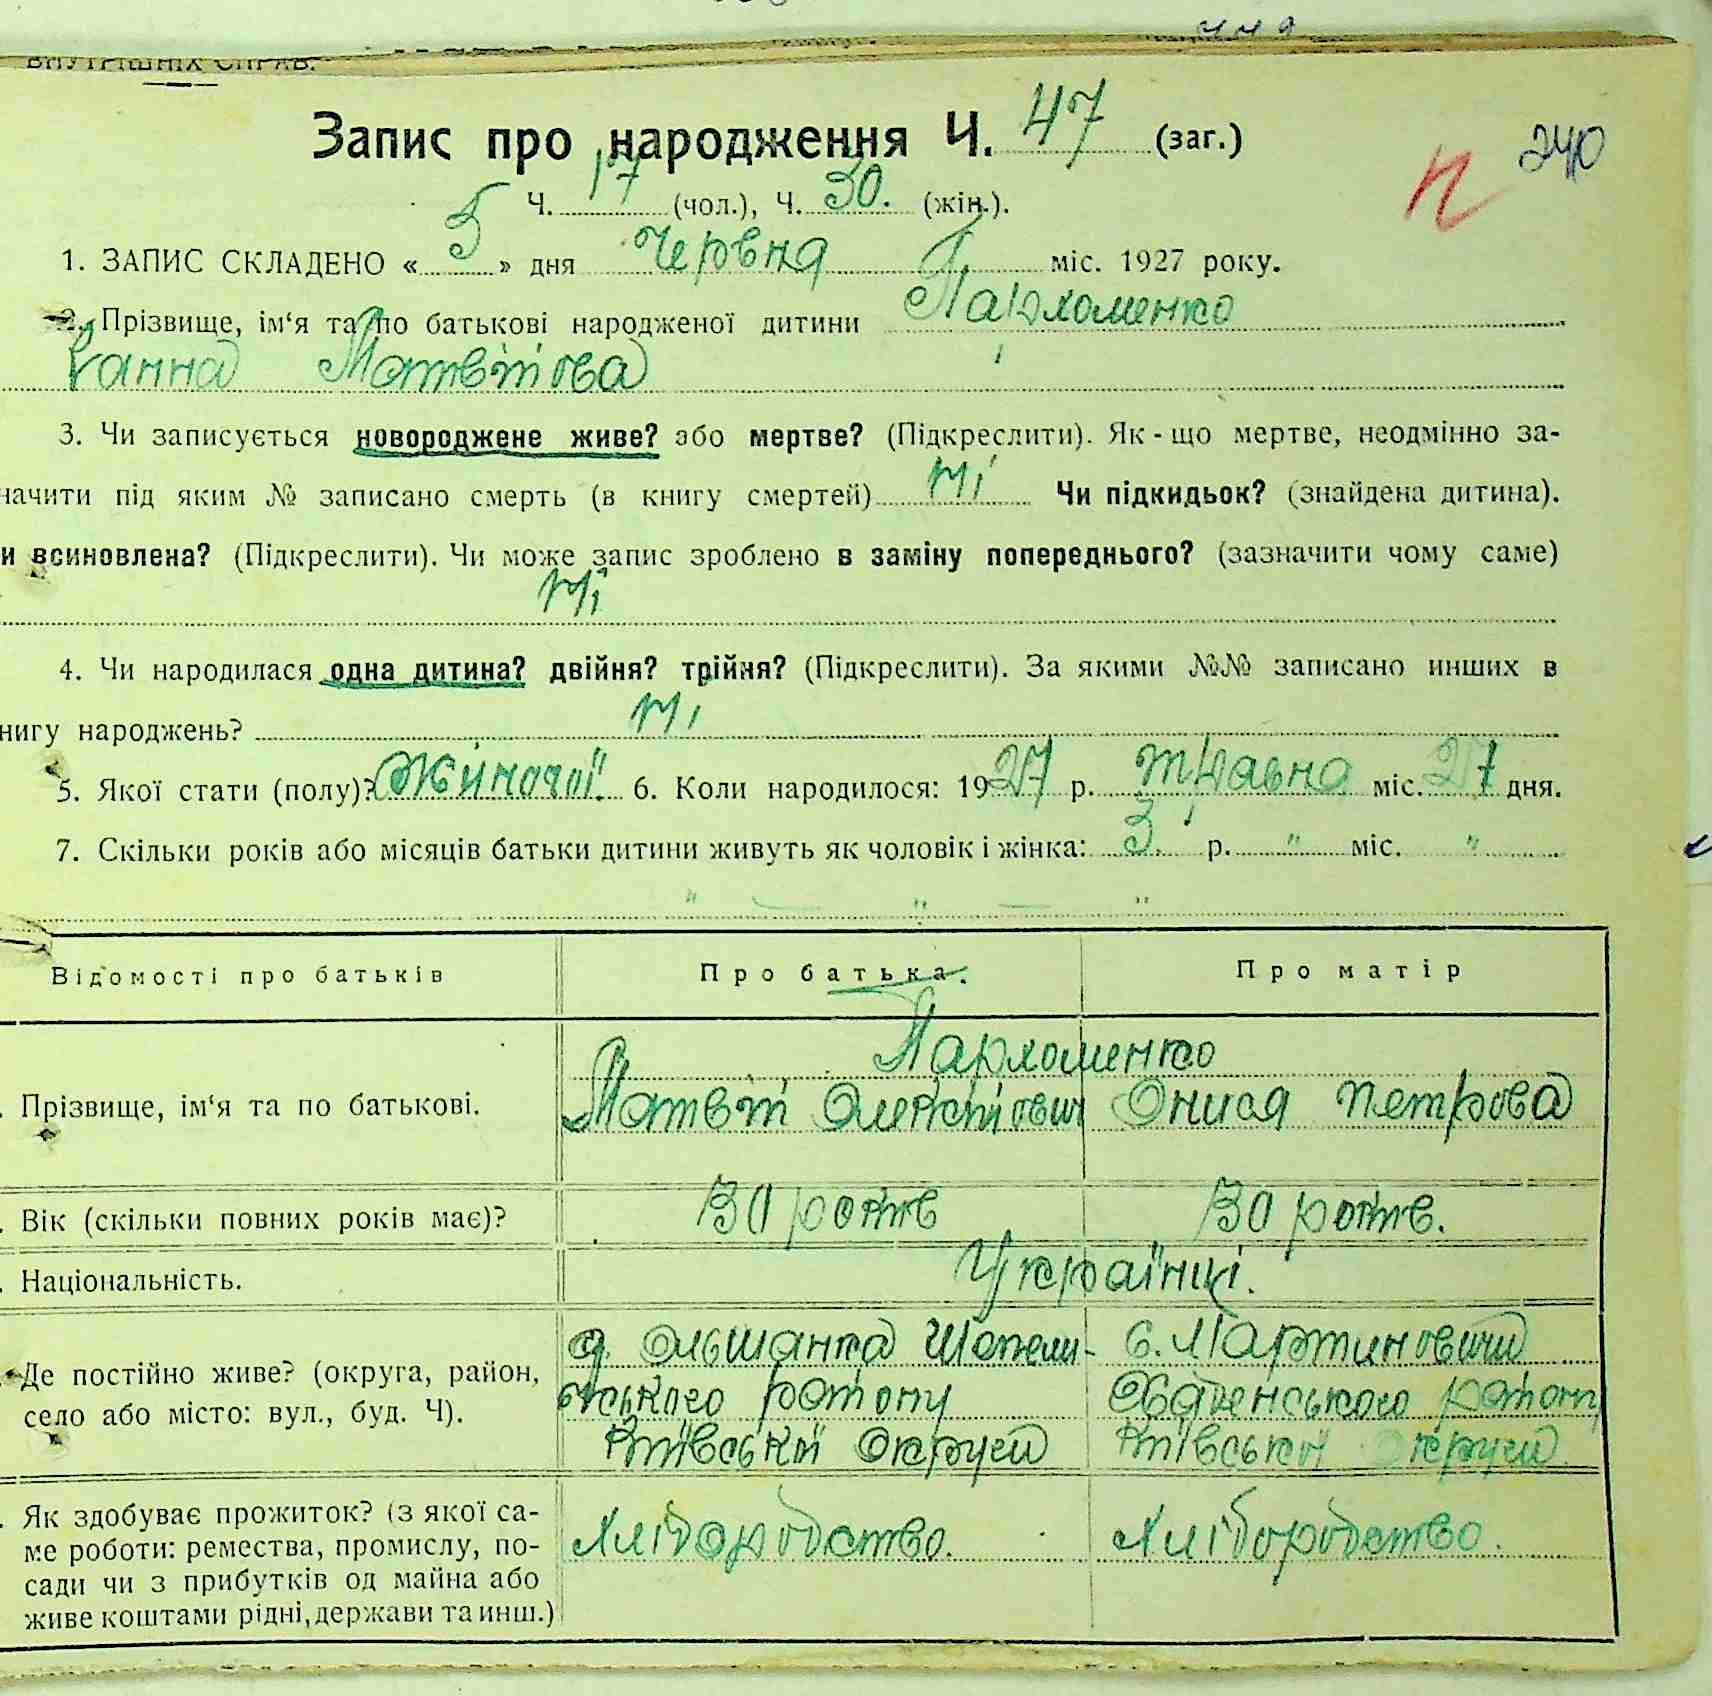 ВНУТРІШНІХ СПРАВ.
Запис про народження Ч. 47 (заг.)
240
Ч. 17 (чол.), Ч. 30. (жін.).
1. ЗАПИС СКЛАДЕНО « 5 » дня Червня міс. 1927 року.
2. Прізвище, ім‘я та по батькові народженої дитини Пархоменко
Ганна Матвіїова
3. Чи записується новороджене живе? або мертве? (Підкреслити). Як-що мертве, неодмінно за-
начити під яким № записано смерть (в книгу смертей) ні Чи підкидьок? (знайдена дитина).
и всиновлена? (Підкреслити). Чи може запис зроблено в заміну попереднього? (зазначити чому саме)
ні
4. Чи народилася одна дитина? двійня? трійня? (Підкреслити). За якими №№ записано инших в
нигу народжень? ні
5. Якої стати (полу)? Жиночої. 6. Коли народилося: 1927 р. травня міс. 27 дня.
7. Скільки років або місяців батьки дитини живуть як чоловік і жінка: 3 р. " міс. "
" — " — "
Відомості про батьків Про батька. Про матір
Пархоменко
. Прізвище, ім‘я та по батькові. Матвій Олексійович Онися Петрова
. Вік (скільки повних років має)? 30 років 30 років.
. Національність. Українці.
д. Ольшанка Шепели- с. Мартиновичи
. Де постійно живе? (округа, район, вського району Хабенського району
село або місто: вул., буд. Ч). Київської Округи Київської округи
. Як здобуває прожиток? (з якої са- Хліборобство. Хліборобство.
ме роботи: ремества, промислу, по-
сади чи з прибутків од майна або
живе коштами рідні, держави та инш.)